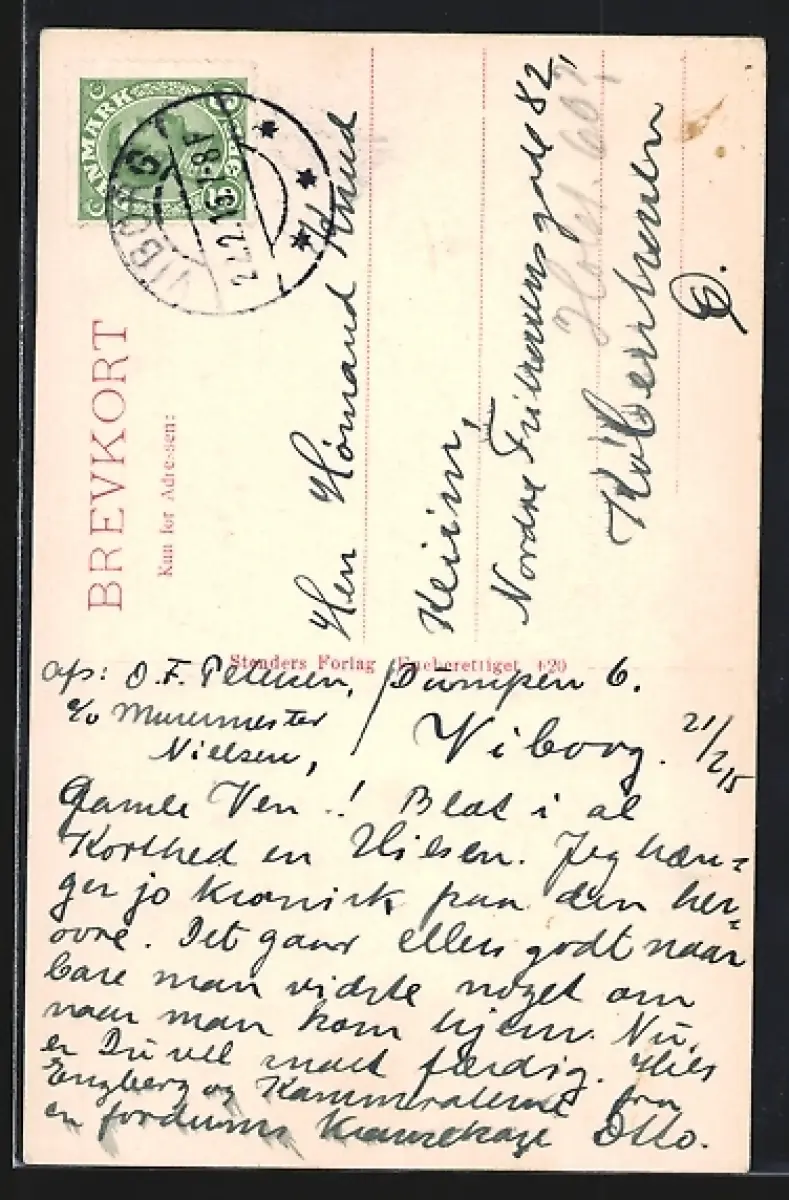 DANMARK
VIBORG
22.2.15. 7-8 F
BREVKORT
Kun for Adressen:
Herr Hørmand Knud
Klein,
Nordre Frihavnsgade 82,
Holst.
København
Ø.
Stenders Forlag Eneberettiget 420
afs: O. F. Petersen, / Dumpen 6.
c/o Murermester
Nielsen, Viborg. 21/2 15
Gamle Ven..! Blot i al
Korthed en Hilsen. Jeg hæn=
ger jo kronisk paa den her=
ovre. Det gaar ellers godt naar
bare man vidste noget om
naar man kom hjem. Nu,
er Du vel snart færdig. Hils
Engberg og Kammeraterne fra
en fordums Otto.